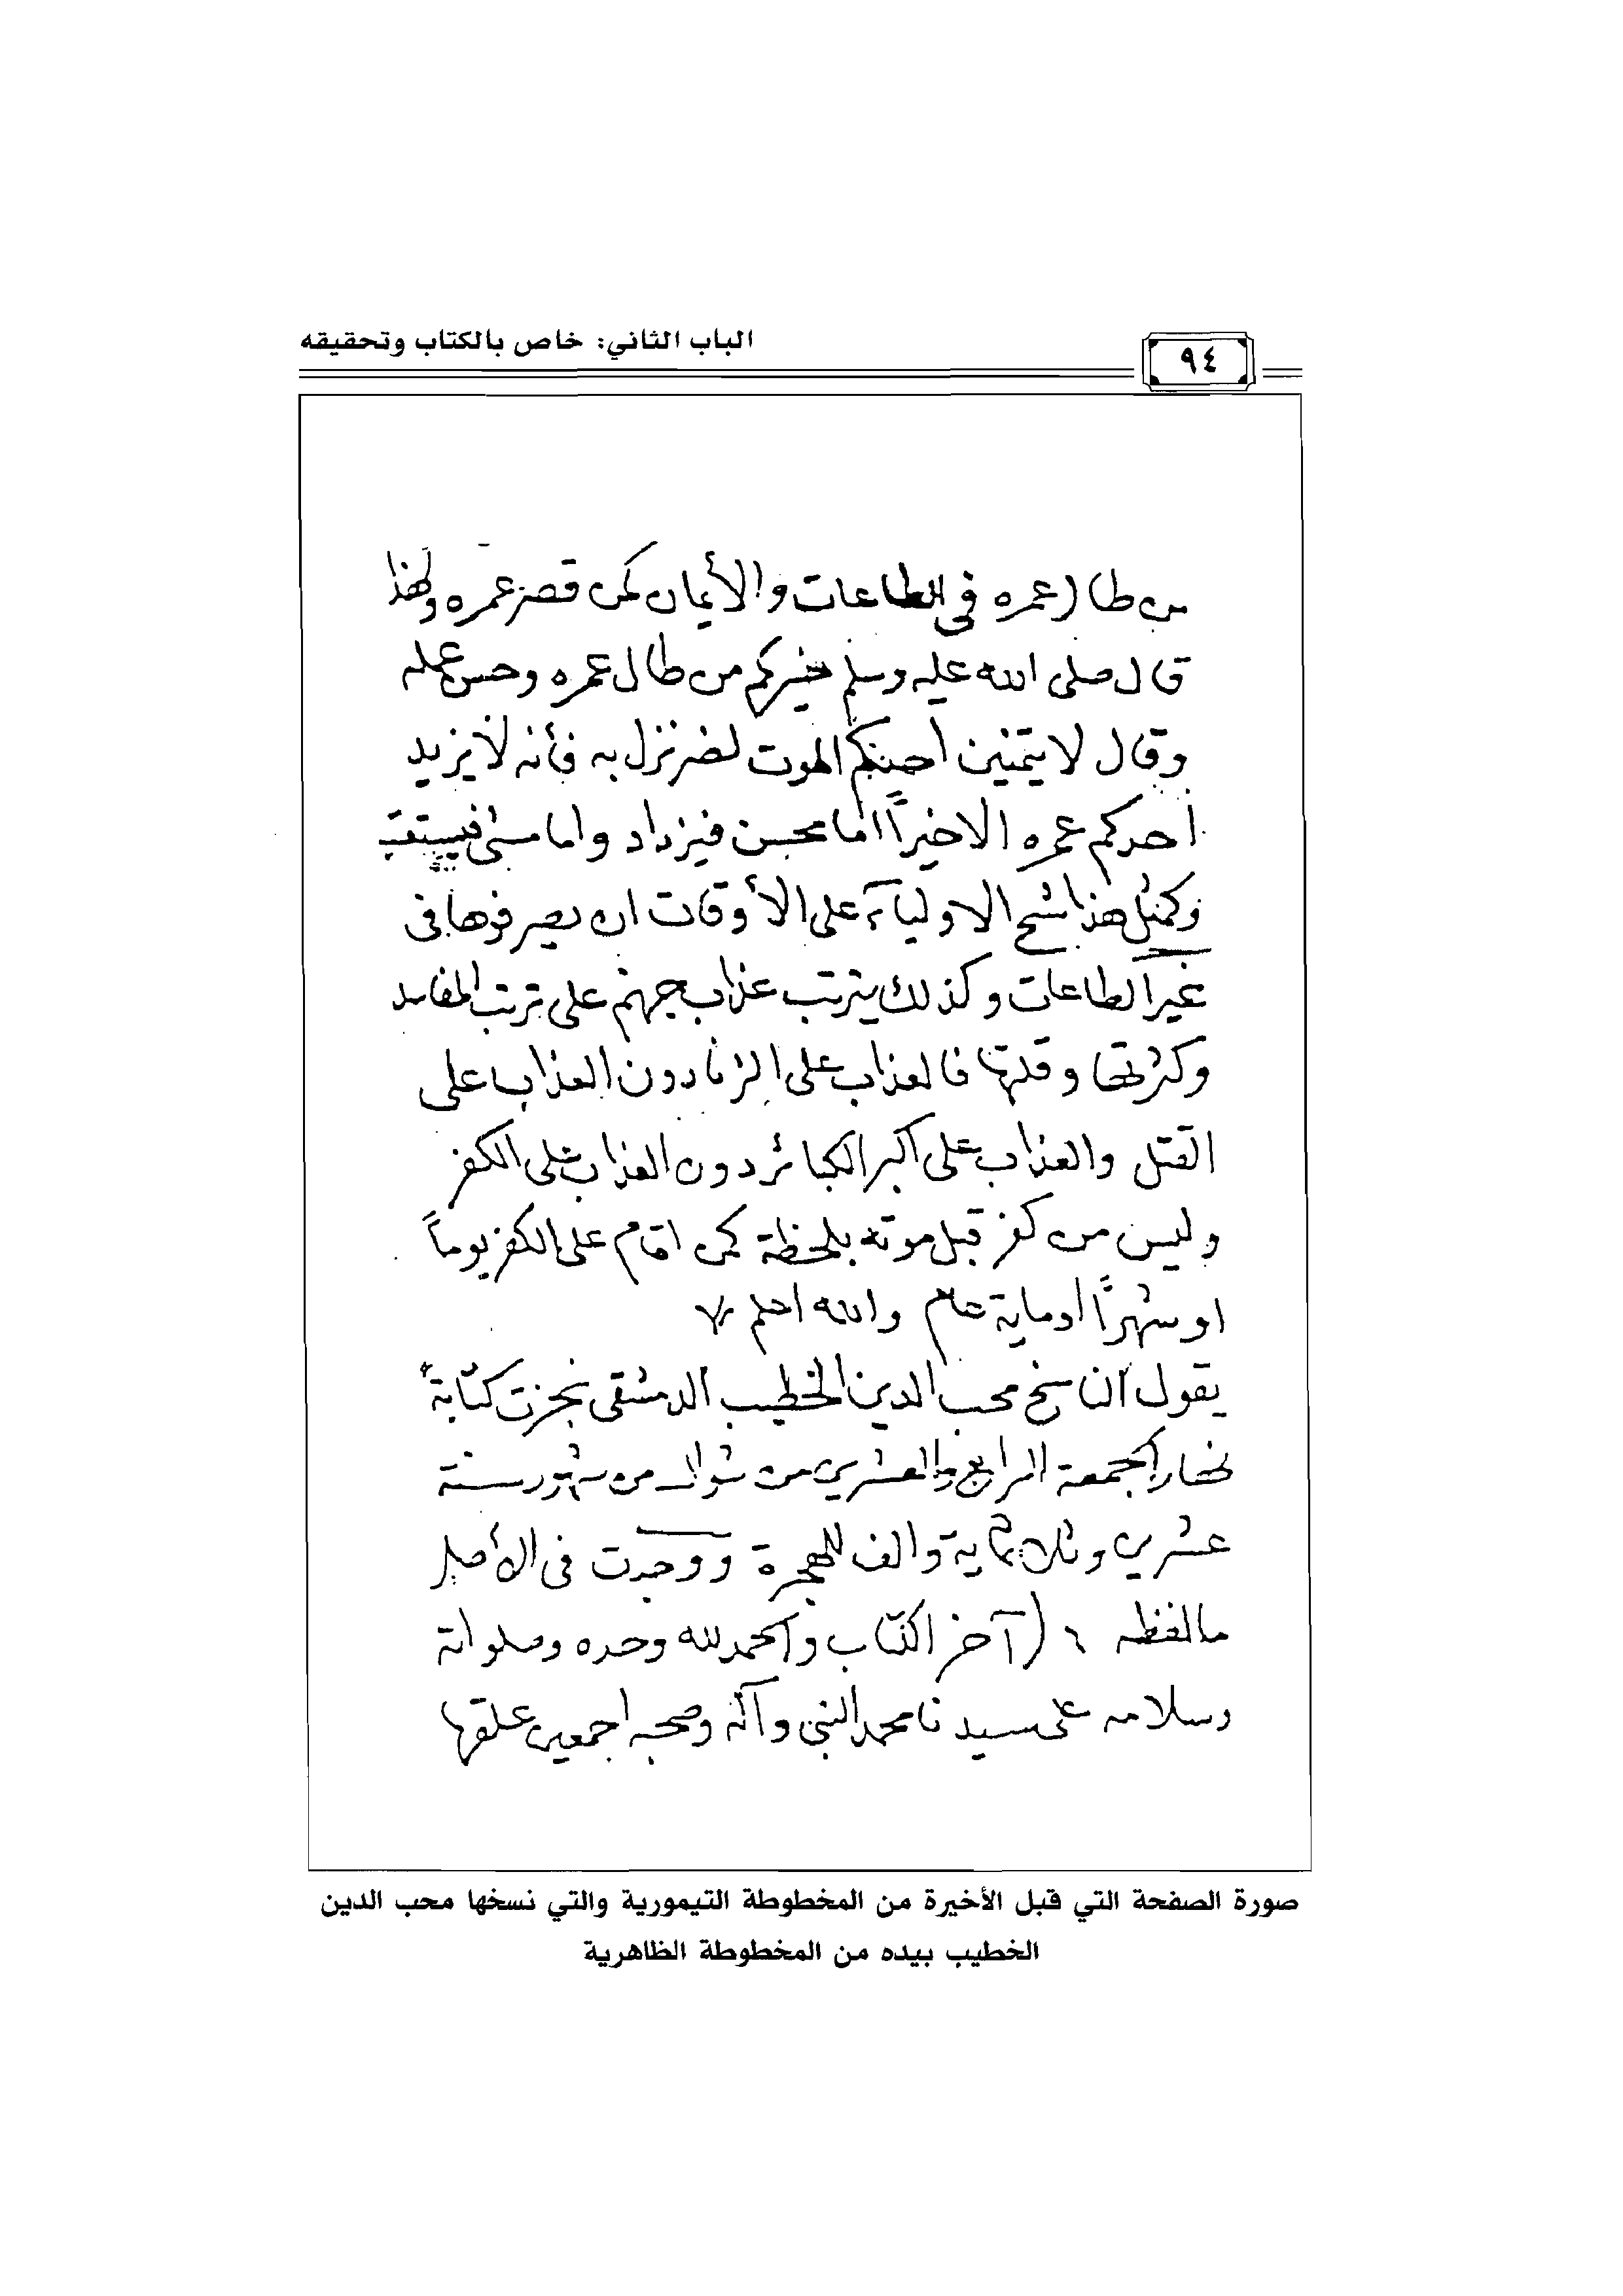 الباب الثاني: خاص بالكتاب وتحقيقه
٩٤
من طال عمره في الطاعات والأيمان كمن قصر عمره ولهذا
قال صلى الله عليه وسلم خيركم من طال عمره وحسن عمله
وقال لا يتمنين احدكم الموت لضر نزل به فأنه لا يزيد
احدكم عمره الا خيراً اما محسن فيزداد واما مسئ فيستعتب
وكمثل هذا شح الاولياء على الأوقات ان يصرفوها في
غير الطاعات وكذلك يترتب عذاب جهنم على ترتب المفاسد
وكثرتها وقلتها فالعذاب على الزنا دون العذاب على
القتل والعذاب على اكبر الكبائر دون العذاب على الكفر
وليس من كفر قبل موته بلحظة كمن اقام على الكفر يوماً
او شهراً او ماية عام والله اعلم
يقول الناسخ محب الدين الخطيب الدمشقى نجزت كتابة
نهار الجمعة الرابع والعشرين من شوال من شهور سنة
عشرين وثلاثماية والف للهجرة ووجدت في الأصل
مالفظه (آخر الكتاب والحمد لله وحده وصلواته
وسلامه على سيدنا محمد النبي وآله وصحبه اجمعين علقها
صورة الصفحة التي قبل الأخيرة من المخطوطة التيمورية والتي نسخها محب الدين
الخطيب بيده من المخطوطة الظاهرية